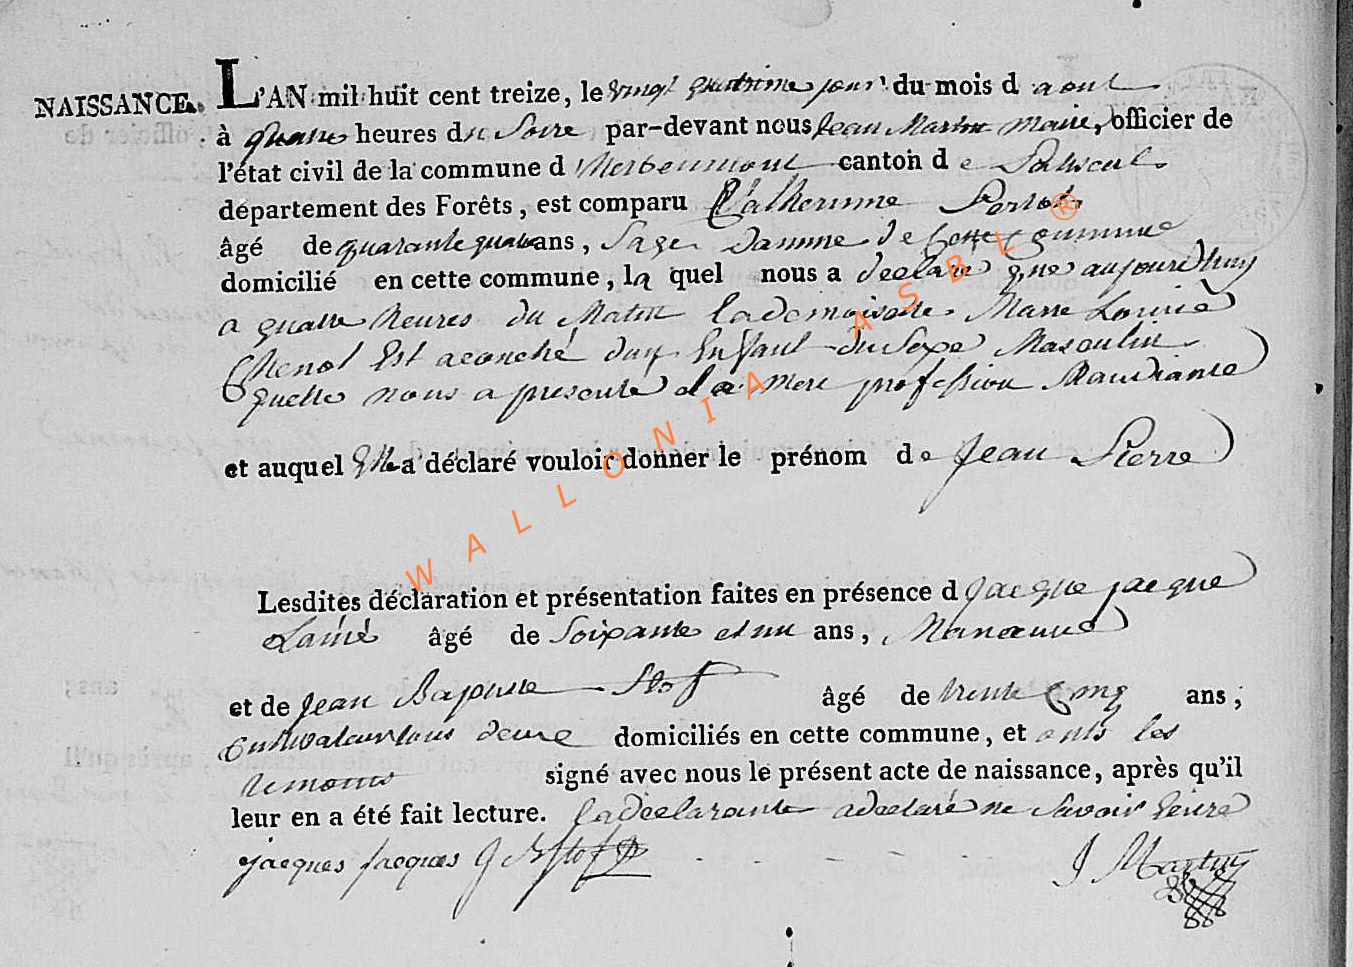 NAISSANCE.
L'AN mil huit cent treize, le vingt quatrime jour du mois d aout
à quatre heures du Soire par-devant nous Jean Martin maire, officier de
l'état civil de la commune d'herbeumont canton de Paliseul
département des Forêts, est comparu Catherinne
âgé de quarante quatre ans, Sage damme de Cette Commune
domicilié en cette commune, laquel nous a declaré que aujourdhuy
a quatre heures du Matin la demoiselle Marie Louise
Chenot Est acouché dun Enfant du Sexe Masculin
quelle nous a presenté la mere profession Mandiante
et auquel Elle a déclaré vouloir donner le prénom de Jean Pierre
Lesdites déclaration et présentation faites en présence d Jacque jacque
Lainé âgé de Soixante et un ans, Manœuve
et de Jean Baptiste âgé de trente Cinq ans,
Cultivateur tous deux domiciliés en cette commune, et onts les
temoins signé avec nous le présent acte de naissance, après qu'il
leur en a été fait lecture. la declarante adeclaré ne Savoir
jacques jacques J Martin
WALLONIA ASBL ®